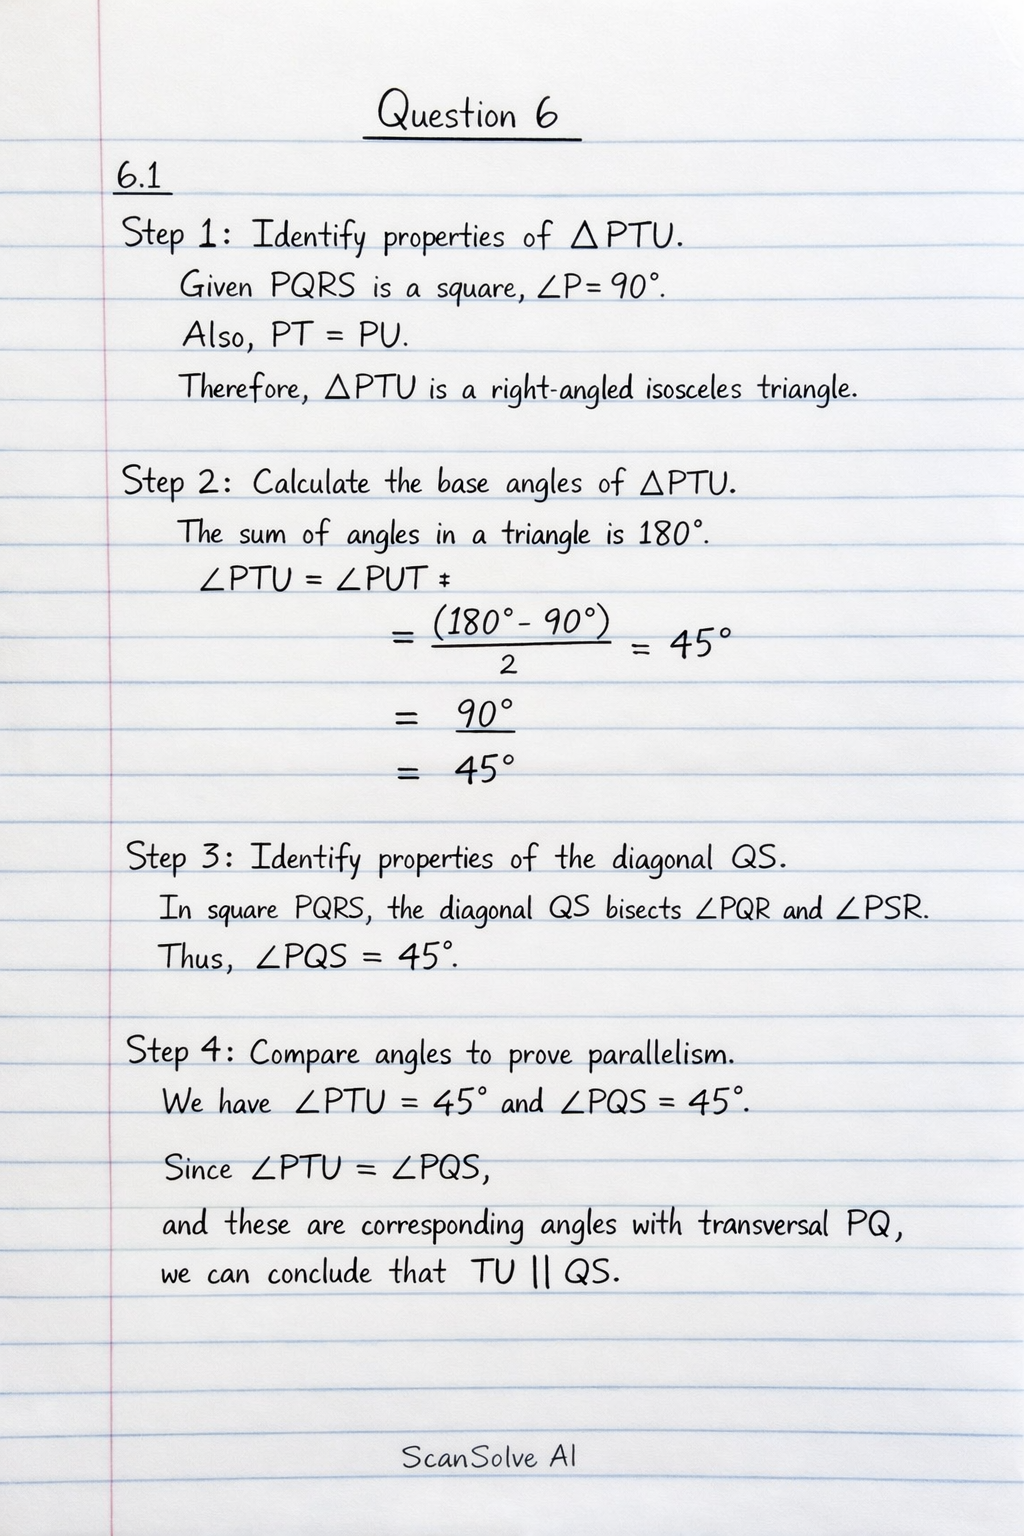 Question 6
6.1
Step 1: Identify properties of △PTU.
Given PQRS is a square, ∠P = 90°.
Also, PT = PU.
Therefore, △PTU is a right-angled isosceles triangle.
Step 2: Calculate the base angles of △PTU.
The sum of angles in a triangle is 180°.
∠PTU = ∠PUT
= (180° - 90°) / 2 = 45°
= 90°
= 45°
Step 3: Identify properties of the diagonal QS.
In square PQRS, the diagonal QS bisects ∠PQR and ∠PSR.
Thus, ∠PQS = 45°.
Step 4: Compare angles to prove parallelism.
We have ∠PTU = 45° and ∠PQS = 45°.
Since ∠PTU = ∠PQS,
and these are corresponding angles with transversal PQ,
we can conclude that TU || QS.
ScanSolve AI